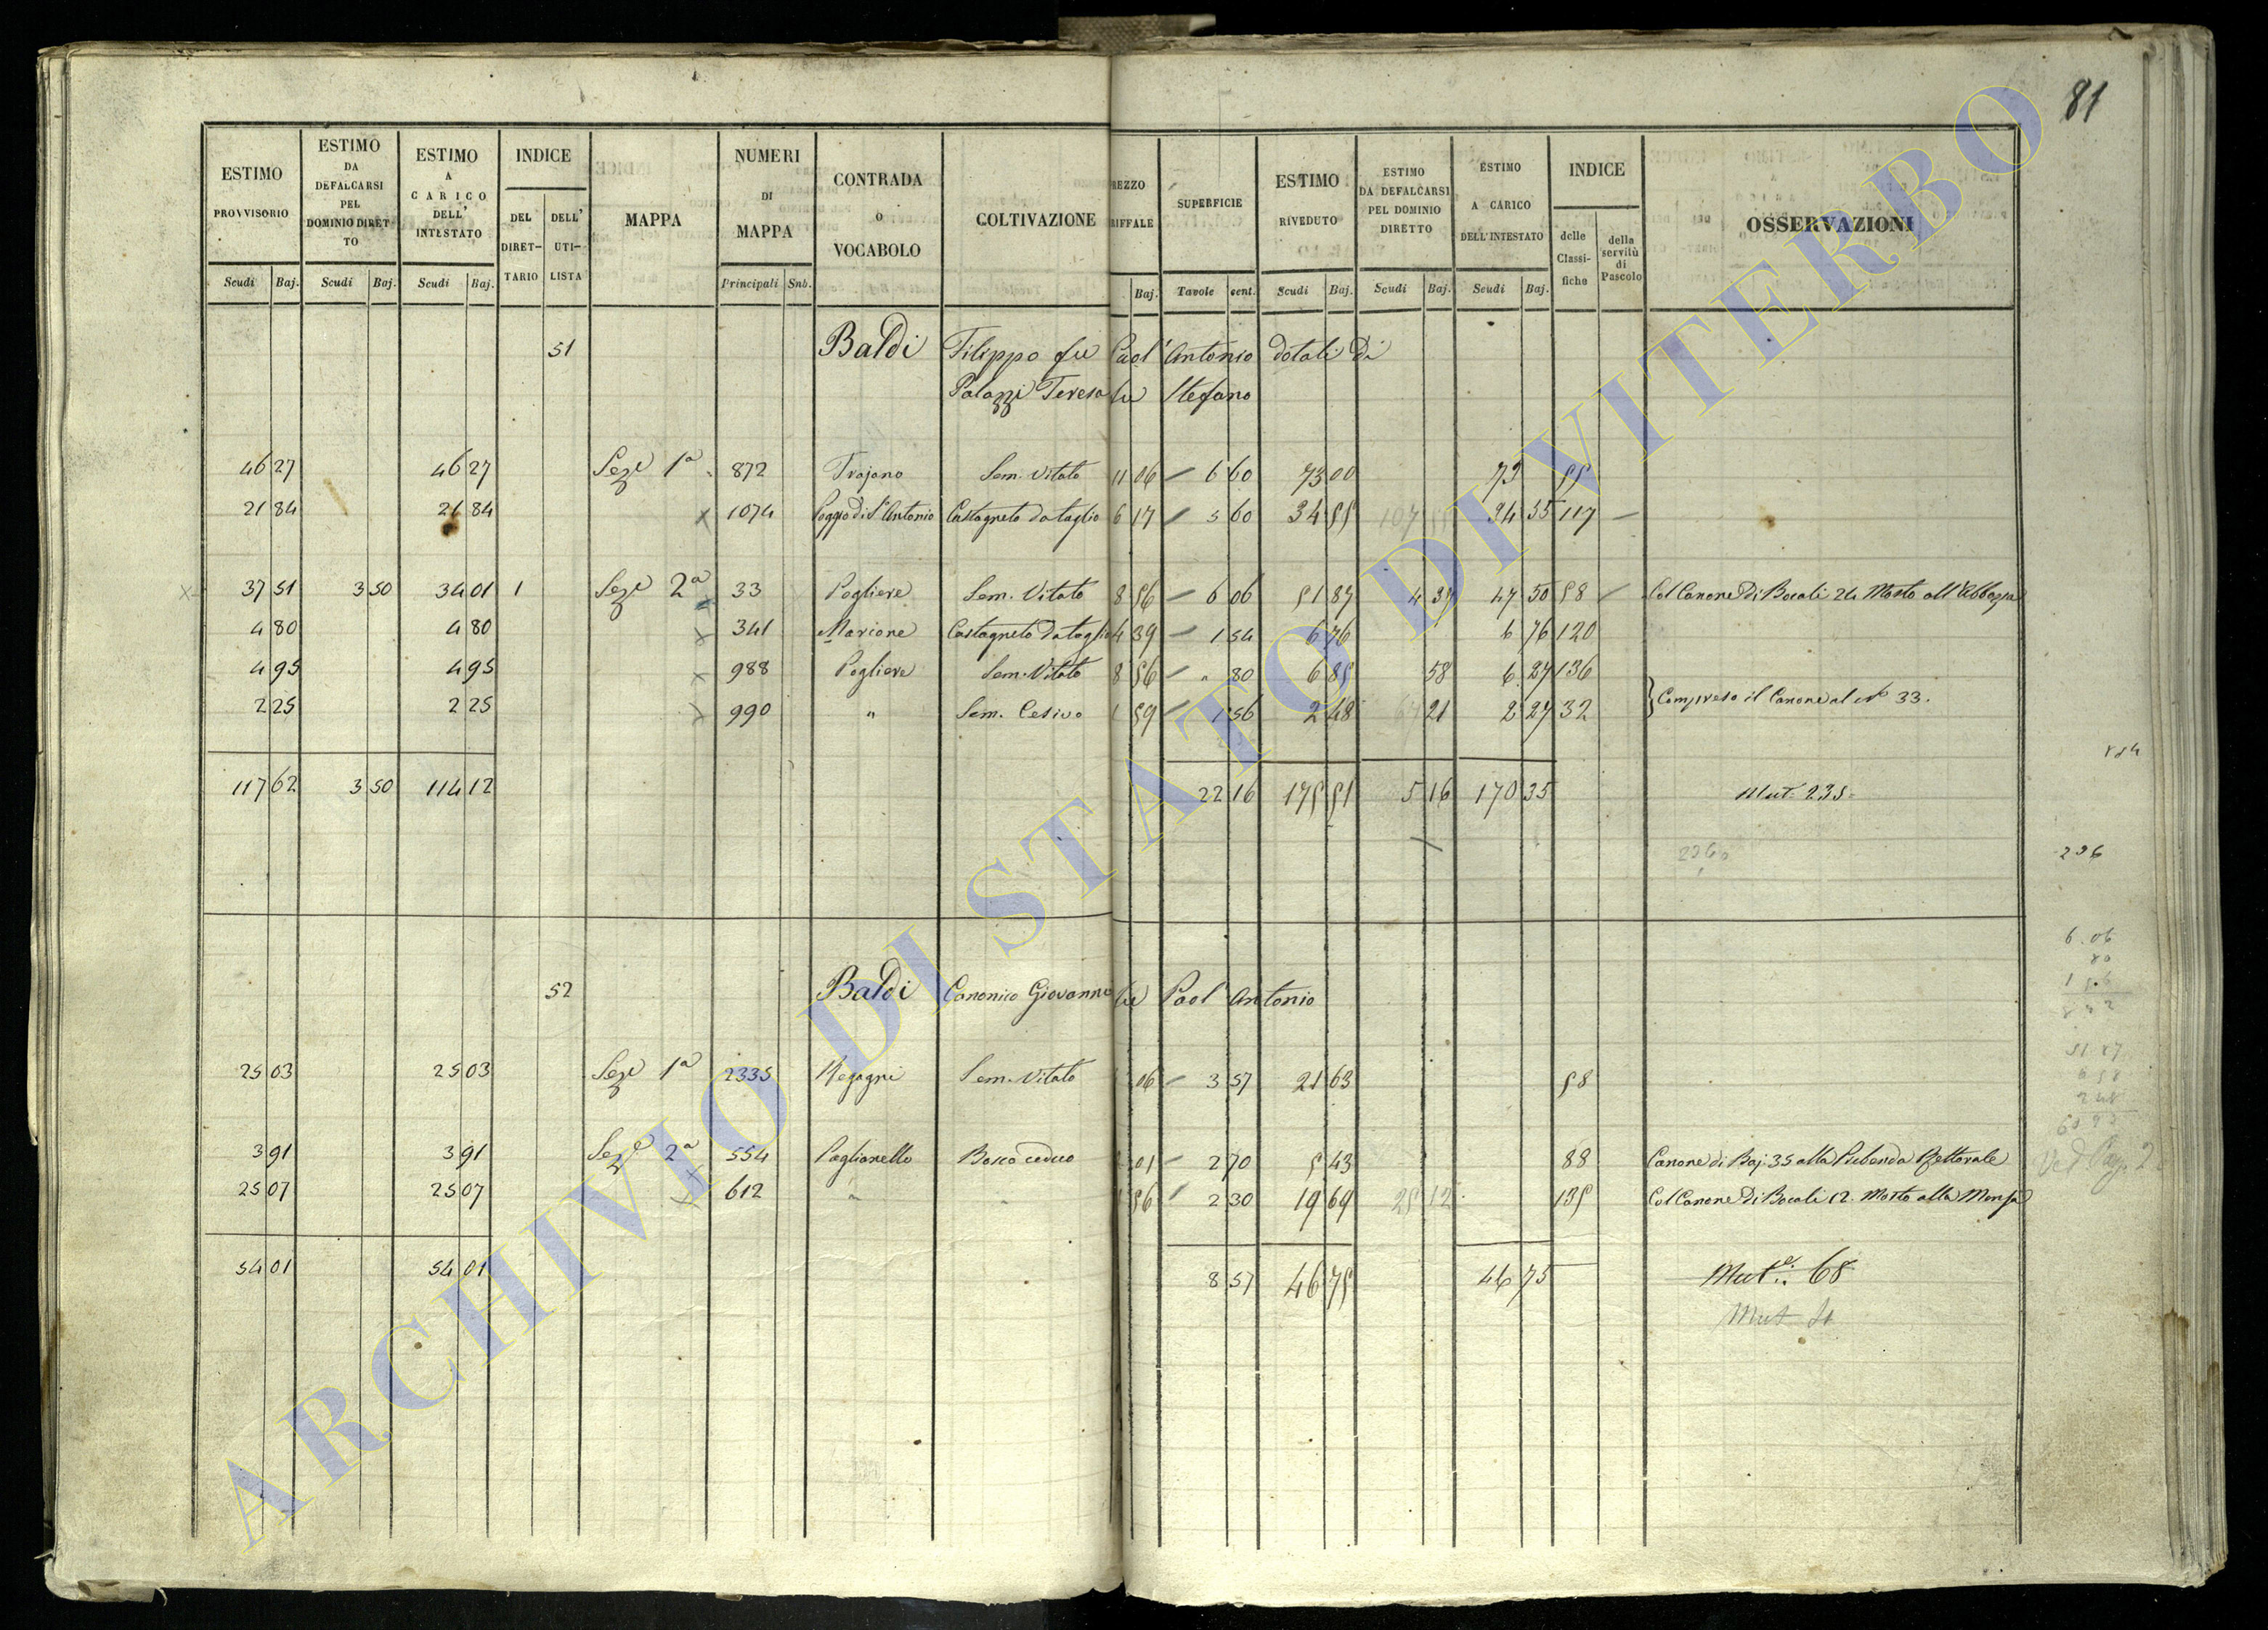 81
ESTIMO PROVVISORIO | ESTIMO DA DEFALCARSI PEL DOMINIO DIRETTO | ESTIMO A CARICO DELL' INTESTATO | INDICE | MAPPA | NUMERI DI MAPPA | CONTRADA o VOCABOLO | COLTIVAZIONE | REZZO RIFFALE | SUPERFICIE | ESTIMO RIVEDUTO | ESTIMO DA DEFALCARSI PEL DOMINIO DIRETTO | ESTIMO A CARICO DELL'INTESTATO | INDICE | OSSERVAZIONI
DEL DIRET-TARIO | DELL' UTI-LISTA | delle Classi-fiche | della servitù di Pascolo
Scudi | Baj. | Scudi | Baj. | Scudi | Baj. | Principali | Sub. | Baj. | Tavole | cent. | Scudi | Baj. | Scudi | Baj. | Scudi | Baj.
51 Baldi Filippo fu Paol' Antonio dotali di
Palazzi Teresa fu Stefano
46 27 | 46 27 | Seze 1a | 872 | Trojano | Sem. Vitato | 11 06 | 6 60 | 73 00 | 73 | 55
21 84 | 21 84 | x 1074 | Poggio di S. Antonio | Castagneto da taglio | 6 17 | 5 60 | 34 55 | 34 55 | 117
x 37 51 | 3 50 | 34 01 | 1 | Seze 2a | 33 | Pogliere | Sem. Vitato | 8 56 | 6 06 | 51 87 | 4 37 | 47 50 | 58 | Col Canone di Bocali 24 Mosto all'Abbazia
4 80 | 4 80 | x 341 | Marione | Castagneto da taglio | 4 39 | 1 54 | 6 76 | 6 76 | 120
4 95 | 4 95 | x 988 | Pogliere | Sem. Vitato | 8 56 | " 80 | 6 85 | 58 | 6 27 | 136
2 25 | 2 25 | x 990 | " | Sem. Cesivo | 1 59 | 1 56 | 2 48 | 21 | 2 27 | 32 | } Compreso il Canone al No 33.
117 62 | 3 50 | 114 12 | 22 16 | 175 51 | 5 16 | 170 35 | Mut. 235
236
296
52 Baldi Canonico Giovanni fu Paol' Antonio
6.06
80
1 56
8 42
25 03 | 25 03 | Seze 1a | 2335 | Sem. Vitato | 06 | 3 57 | 21 63 | 58
51 87
2 48
3 91 | 3 91 | Seze 2a | 554 | Poglianello | Bosco ceduo | 01 | 2 70 | 5 43 | 88 | Canone di Baj. 35 alla Prebenda Rettorale
25 07 | 25 07 | x 612 | " | " | 56 | 2 30 | 19 69 | 25 12 | 135 | Col Canone di Bocali 12. Mosto alla Mensa
54 01 | 54 01 | 8 57 | 46 75 | 46 75 | Mut. 68
Mut
ARCHIVIO DI STATO DI VITERBO